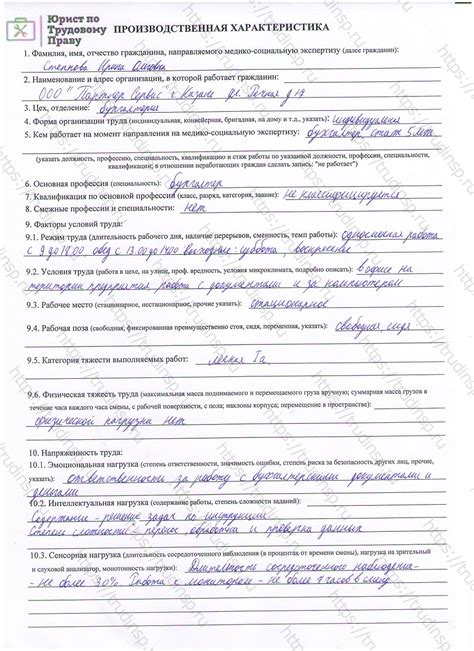 Юрист по
Трудовому
Праву
ПРОИЗВОДСТВЕННАЯ ХАРАКТЕРИСТИКА
1. Фамилия, имя, отчество гражданина, направляемого медико-социальную экспертизу (далее гражданин):
Степнова Ирина Олеговна
2. Наименование и адрес организации, в которой работает гражданин:
ООО "Партнер Сервис" г. Казань ул. Речная д 17
3. Цех, отделение: бухгалтерия
4. Форма организации труда (индивидуальная, конвейерная, бригадная, на дому и т.д., указать): индивидуальная
5. Кем работает на момент направления на медико-социальную экспертизу: бухгалтер стаж 5 лет
(указать должность, профессию, специальность, квалификацию и стаж работы по указанной должности, профессии, специальности,
квалификации; в отношении неработающих граждан сделать запись: "не работает")
6. Основная профессия (специальность): бухгалтер
7. Квалификация по основной профессии (класс, разряд, категория, звание): не классифицируется
8. Смежные профессии и специальности: нет
9. Факторы условий труда:
9.1. Режим труда (длительность рабочего дня, наличие перерывов, сменность, темп работы): односменная работа
с 9 до 18.00 обед с 13.00 до 14.00 выходные: суббота, воскресение
9.2. Условия труда (работа в цехе, на улице, проф. вредность, условия микроклимата, подробно описать): в офисе на
територии предприятия работа с документами и за компьютером
9.3. Рабочее место (стационарное, нестационарное, прочие указать): стационарное
9.4. Рабочая поза (свободная, фиксированная преимущественно стоя, сидя, переменная, указать): свободная, сидя
9.5. Категория тяжести выполняемых работ: легкая Iа
9.6. Физическая тяжесть труда (максимальная масса поднимаемого и перемещаемого груза вручную; суммарная масса грузов в
течение часа каждого часа смены, с рабочей поверхности, с пола; наклоны корпуса; перемещение в пространстве):
физической нагрузки нет
10. Напряженность труда:
10.1. Эмоциональная нагрузка (степень ответственности, значимость ошибки, степень риска за безопасность других лиц, прочие,
указать): ответственность за работу с бухгалтерскими документами и
деньгами
10.2. Интеллектуальная нагрузка (содержание работы, степень сложности заданий):
Содержание - решение задач по инструкции
Степень сложности - перенос, обработка и проверка данных
10.3. Сенсорная нагрузка (длительность сосредоточенного наблюдения (в процентах от времени смены), нагрузка на зрительный
и слуховой анализатор, монотонность нагрузки): Длительность сосредоточенного наблюдения-
- не более 30% Работа с монитором - не более 4 часов в смену
https://trudinsp.ru